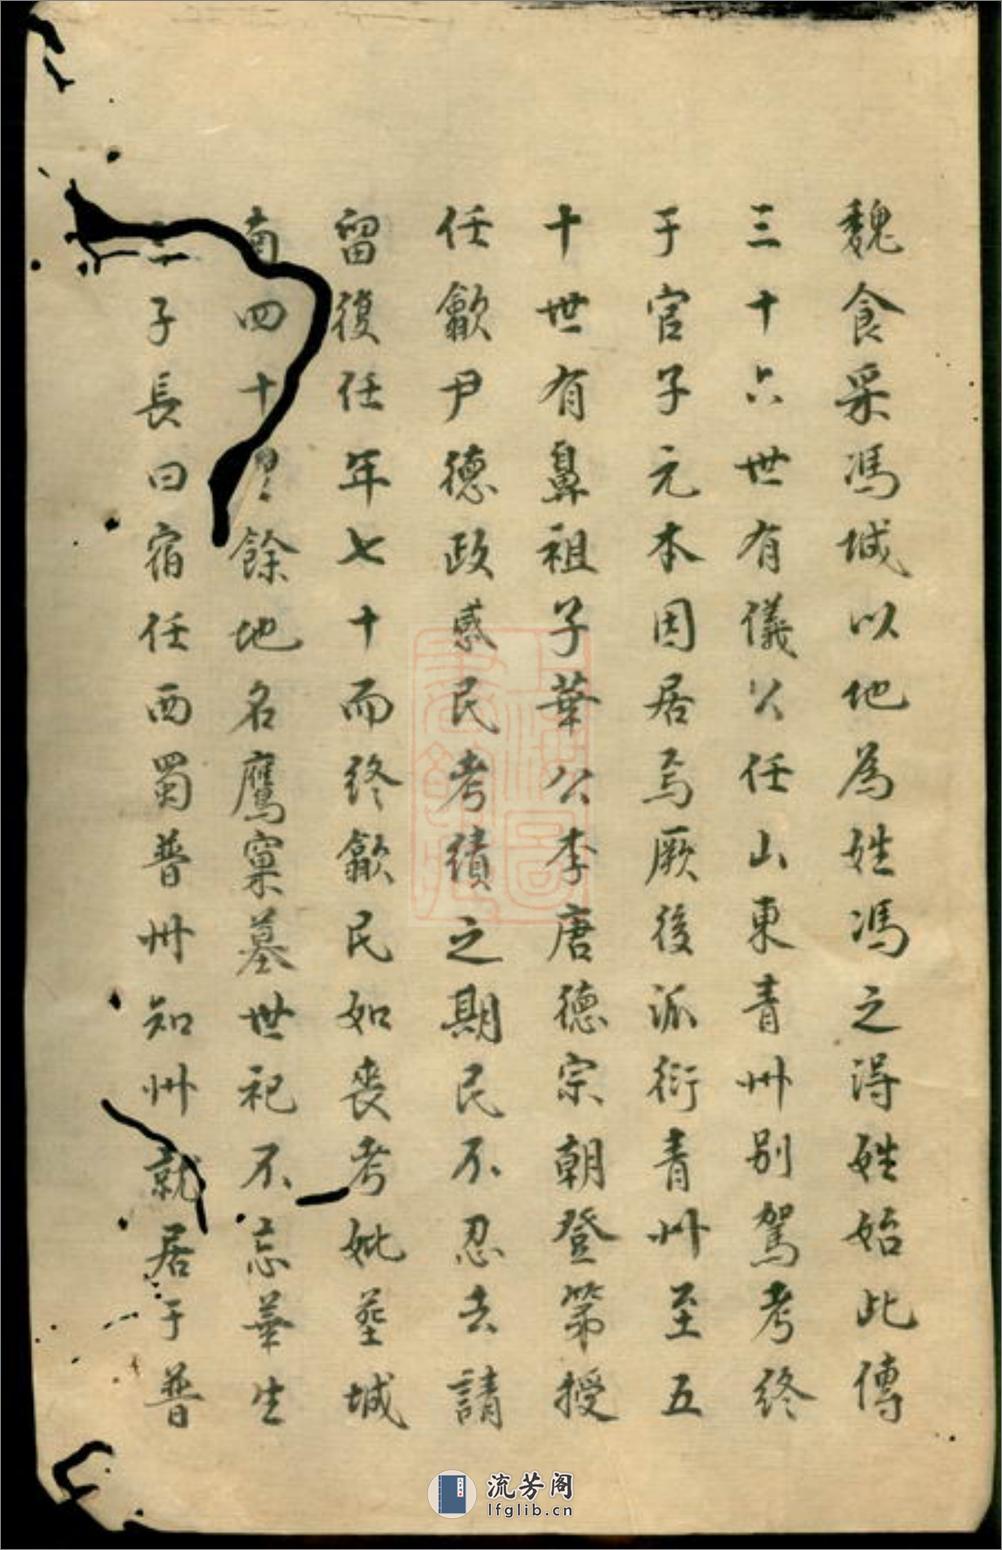 魏食采馮城以地為姓馮之得姓始此傳
三十六世有儀公任山東青州別駕考終
于官子元本因居焉厥後派衍青州至五
十世有鼻祖子華公李唐德宗朝登第授
任歙尹德政感民考績之期民不忍去請
留復任年七十而終歙民如喪考妣塟城
南四十里餘地名鷹窠墓世祀不忘華生
三子長曰宿任西蜀普州知州就居于普
上海圖書館藏
流芳阁
lfglib.cn